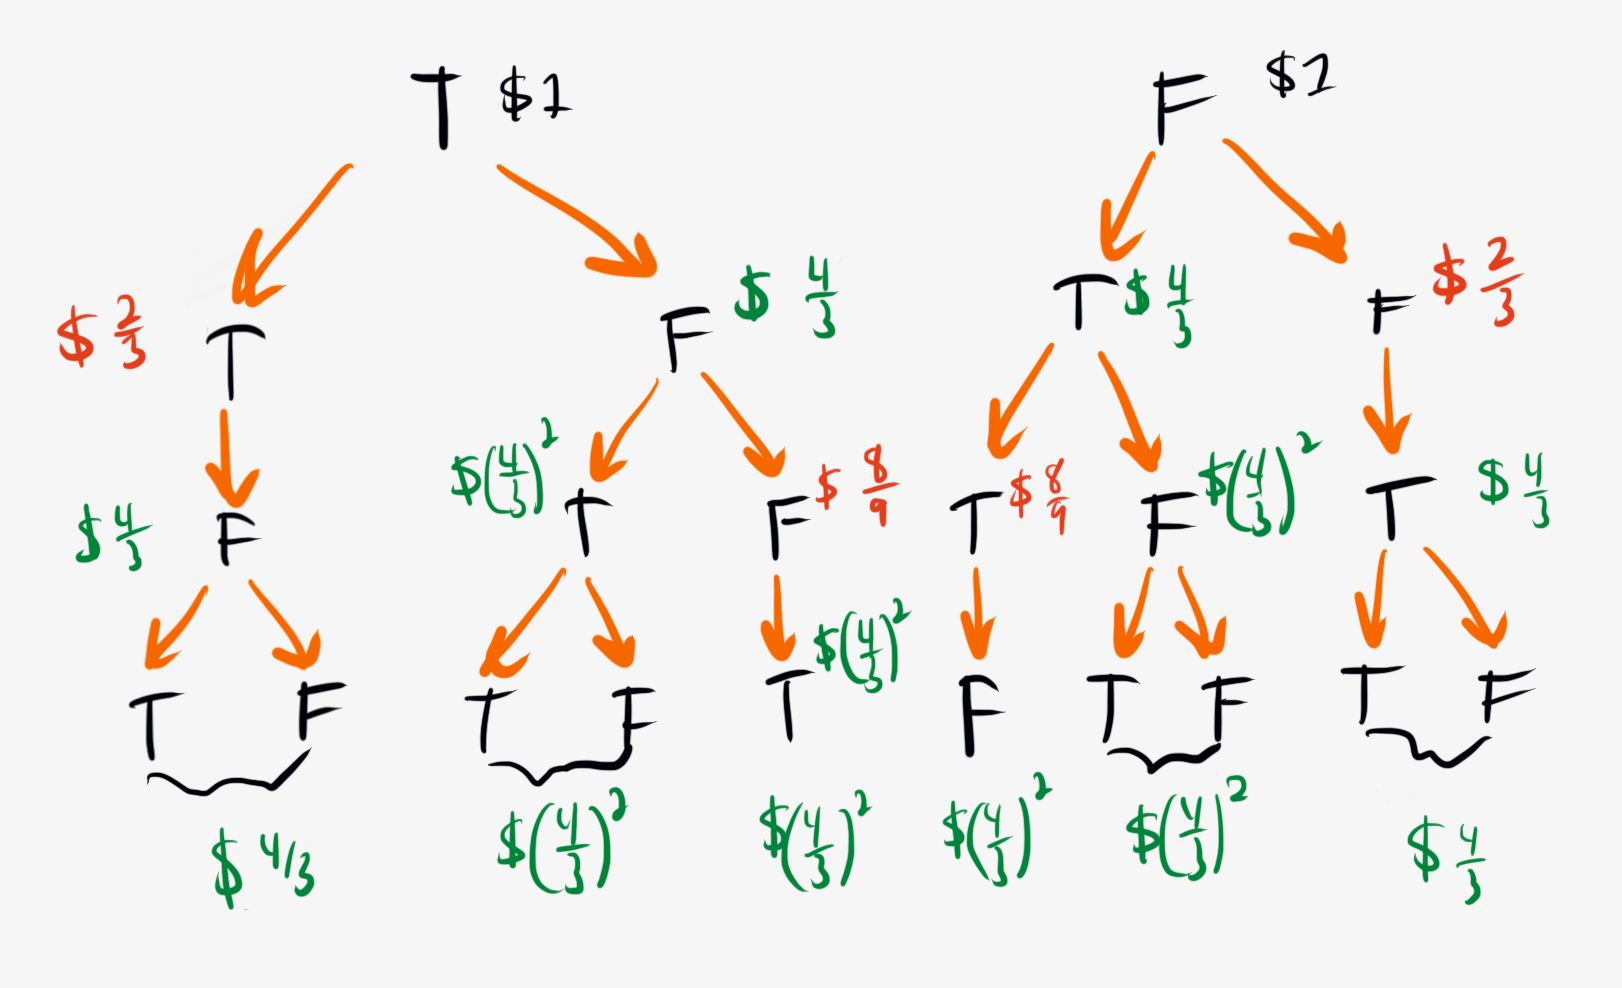 T $1 F $1
$ 2/3 T F $ 4/3 T $ 4/3 F $ 2/3
$ 4/3 F $(4/3)² T F $ 8/9 T $ 8/9 F $(4/3)² T $ 4/3
T F T F T $(4/3)² F T F T F
$ 4/3 $(4/3)² $(4/3)² $(4/3)² $(4/3)² $ 4/3